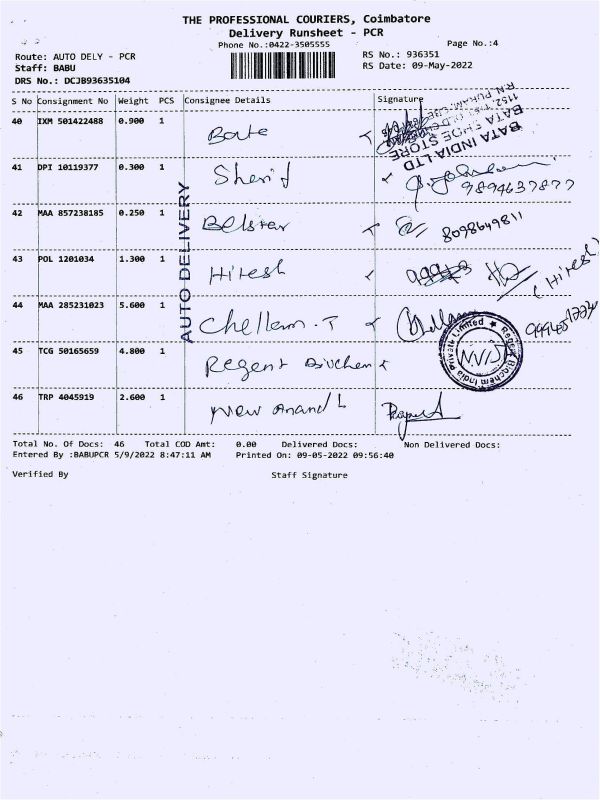 THE PROFESSIONAL COURIERS, Coimbatore
Delivery Runsheet - PCR
Phone No.:0422-3505555
Page No.:4
Route: AUTO DELY - PCR
RS No.: 936351
Staff: BABU
RS Date: 09-May-2022
DRS No.: DCJB93635104
S No Consignment No Weight PCS Consignee Details Signature
40 IXM 501422488 0.900 1
BATA INDIA LTD
BATA SHOE STORE
41 DPI 10119377 0.300 1 Sherif
9894637877
42 MAA 857238185 0.250 1 Belstar
8098649811
43 POL 1201034 1.300 1 Hitesh
(Hitesh)
44 MAA 285231023 5.600 1 Chellam. T
45 TCG 50165659 4.800 1 Regent
Regent Biochem India Private Limited
46 TRP 4045919 2.600 1 New Anand
AUTO DELIVERY
Total No. Of Docs: 46 Total COD Amt: 0.00 Delivered Docs: Non Delivered Docs:
Entered By :BABUPCR 5/9/2022 8:47:11 AM Printed On: 09-05-2022 09:56:40
Verified By Staff Signature